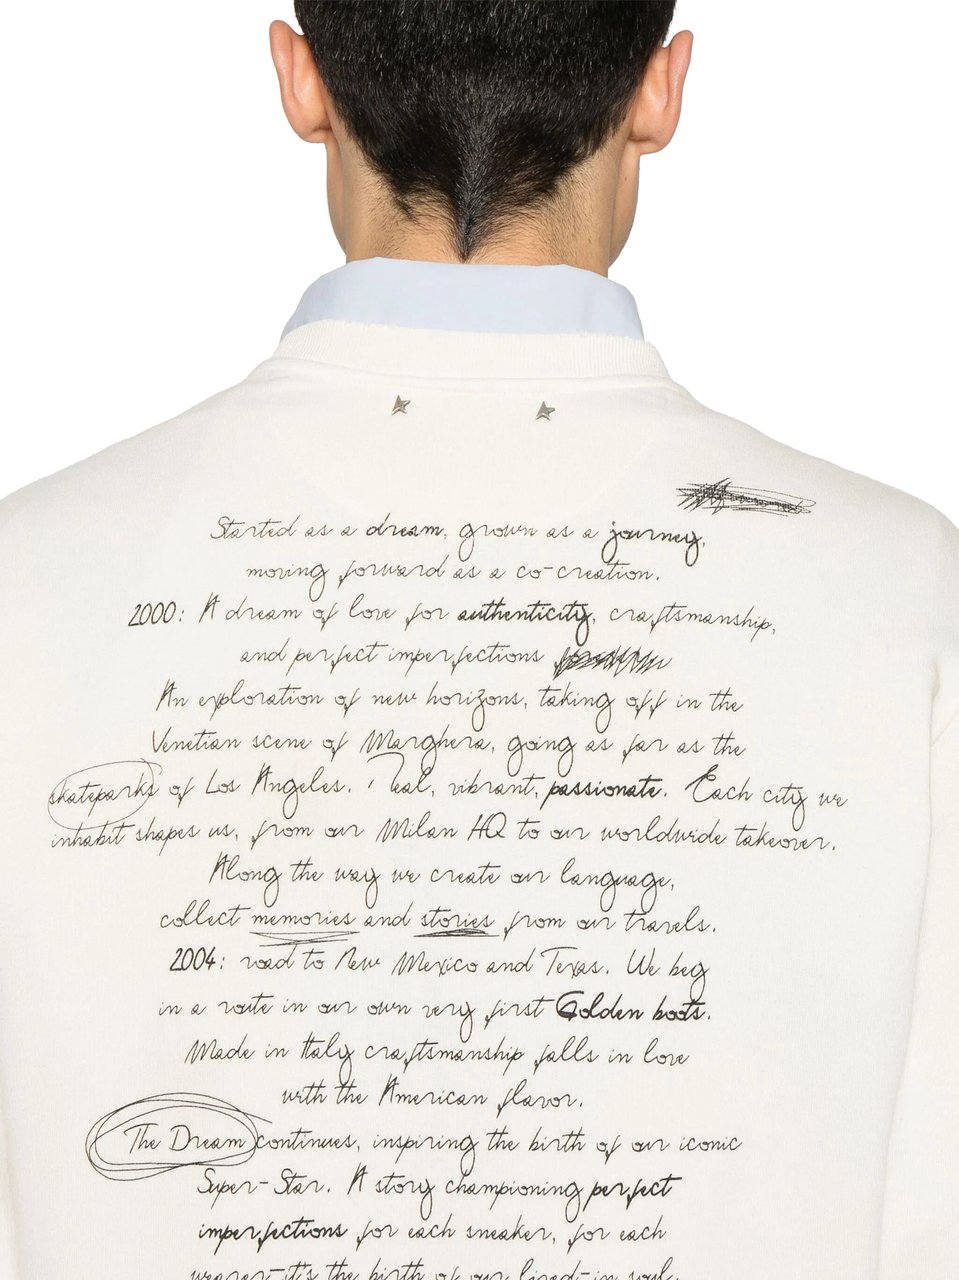 Started as a dream, grown as a journey,
moving forward as a co-creation.
2000: A dream of love for authenticity, craftsmanship,
and perfect imperfections
An exploration of new horizons, taking off in the
Venetian scene of Marghera, going as far as the
skateparks of Los Angeles. Real, vibrant, passionate. Each city we
inhabit shapes us, from our Milan HQ to our worldwide takeover.
Along the way we create our language,
collect memories and stories from our travels.
2004: road to New Mexico and Texas. We beg
in a route in our own very first Golden boots.
Made in Italy craftsmanship falls in love
with the American flavor.
The Dream continues, inspiring the birth of our iconic
Super-Star. A story championing perfect
imperfections for each sneaker, for each
wearer-it's the birth of our lived-in soul.